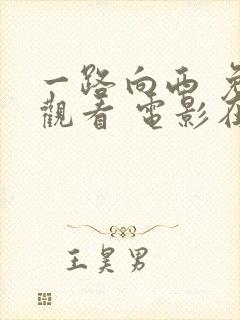 一路向西
觀看 電影
王昊男